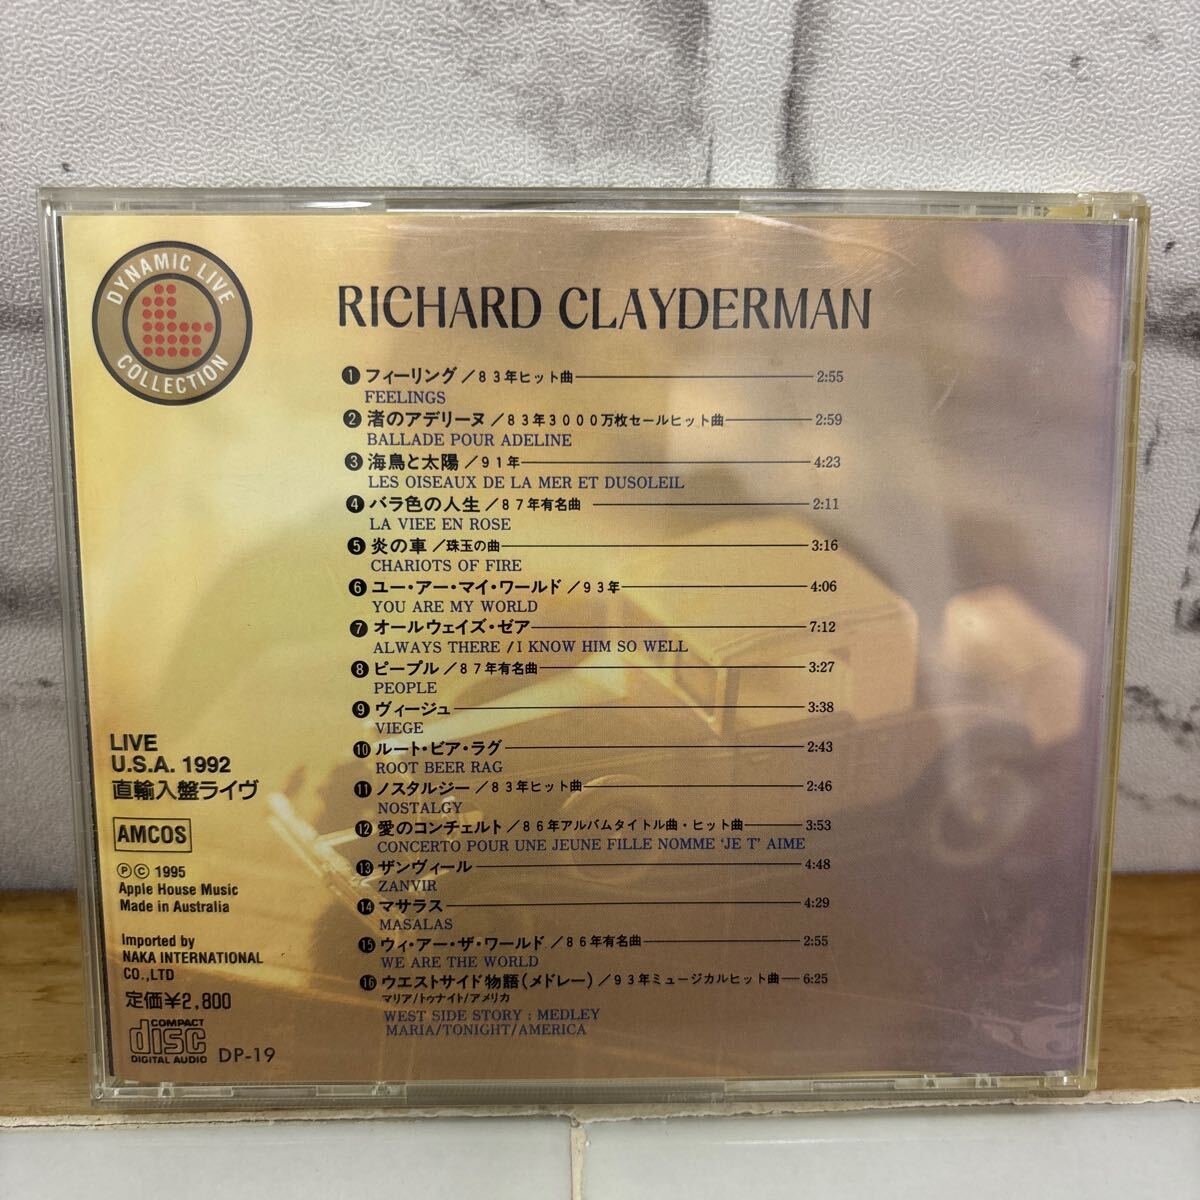 DYNAMIC LIVE
COLLECTION
RICHARD CLAYDERMAN
❶ フィーリング／８３年ヒット曲 2:55
FEELINGS
❷ 渚のアデリーヌ／８３年３０００万枚セールヒット曲 2:59
BALLADE POUR ADELINE
❸ 海鳥と太陽／９１年 4:23
LES OISEAUX DE LA MER ET DUSOLEIL
❹ バラ色の人生／８７年有名曲 2:11
LA VIEE EN ROSE
❺ 炎の車／珠玉の曲 3:16
CHARIOTS OF FIRE
❻ ユー・アー・マイ・ワールド／９３年 4:06
YOU ARE MY WORLD
❼ オールウェイズ・ゼア 7:12
ALWAYS THERE / I KNOW HIM SO WELL
❽ ピープル／８７年有名曲 3:27
PEOPLE
❾ ヴィージュ 3:38
VIEGE
❿ ルート・ビア・ラグ 2:43
ROOT BEER RAG
⓫ ノスタルジー／８３年ヒット曲 2:46
NOSTALGY
⓬ 愛のコンチェルト／８６年アルバムタイトル曲・ヒット曲 3:53
CONCERTO POUR UNE JEUNE FILLE NOMME 'JE T' AIME
⓭ ザンヴィール 4:48
ZANVIR
⓮ マサラス 4:29
MASALAS
⓯ ウィ・アー・ザ・ワールド／８６年有名曲 2:55
WE ARE THE WORLD
⓰ ウエストサイド物語（メドレー）／９３年ミュージカルヒット曲 6:25
マリア/トゥナイト/アメリカ
WEST SIDE STORY : MEDLEY
MARIA/TONIGHT/AMERICA
LIVE
U.S.A. 1992
直輸入盤ライヴ
AMCOS
Ⓟ Ⓒ 1995
Apple House Music
Made in Australia
Imported by
NAKA INTERNATIONAL
CO.,LTD
定価¥2,800
COMPACT
disc
DIGITAL AUDIO
DP-19